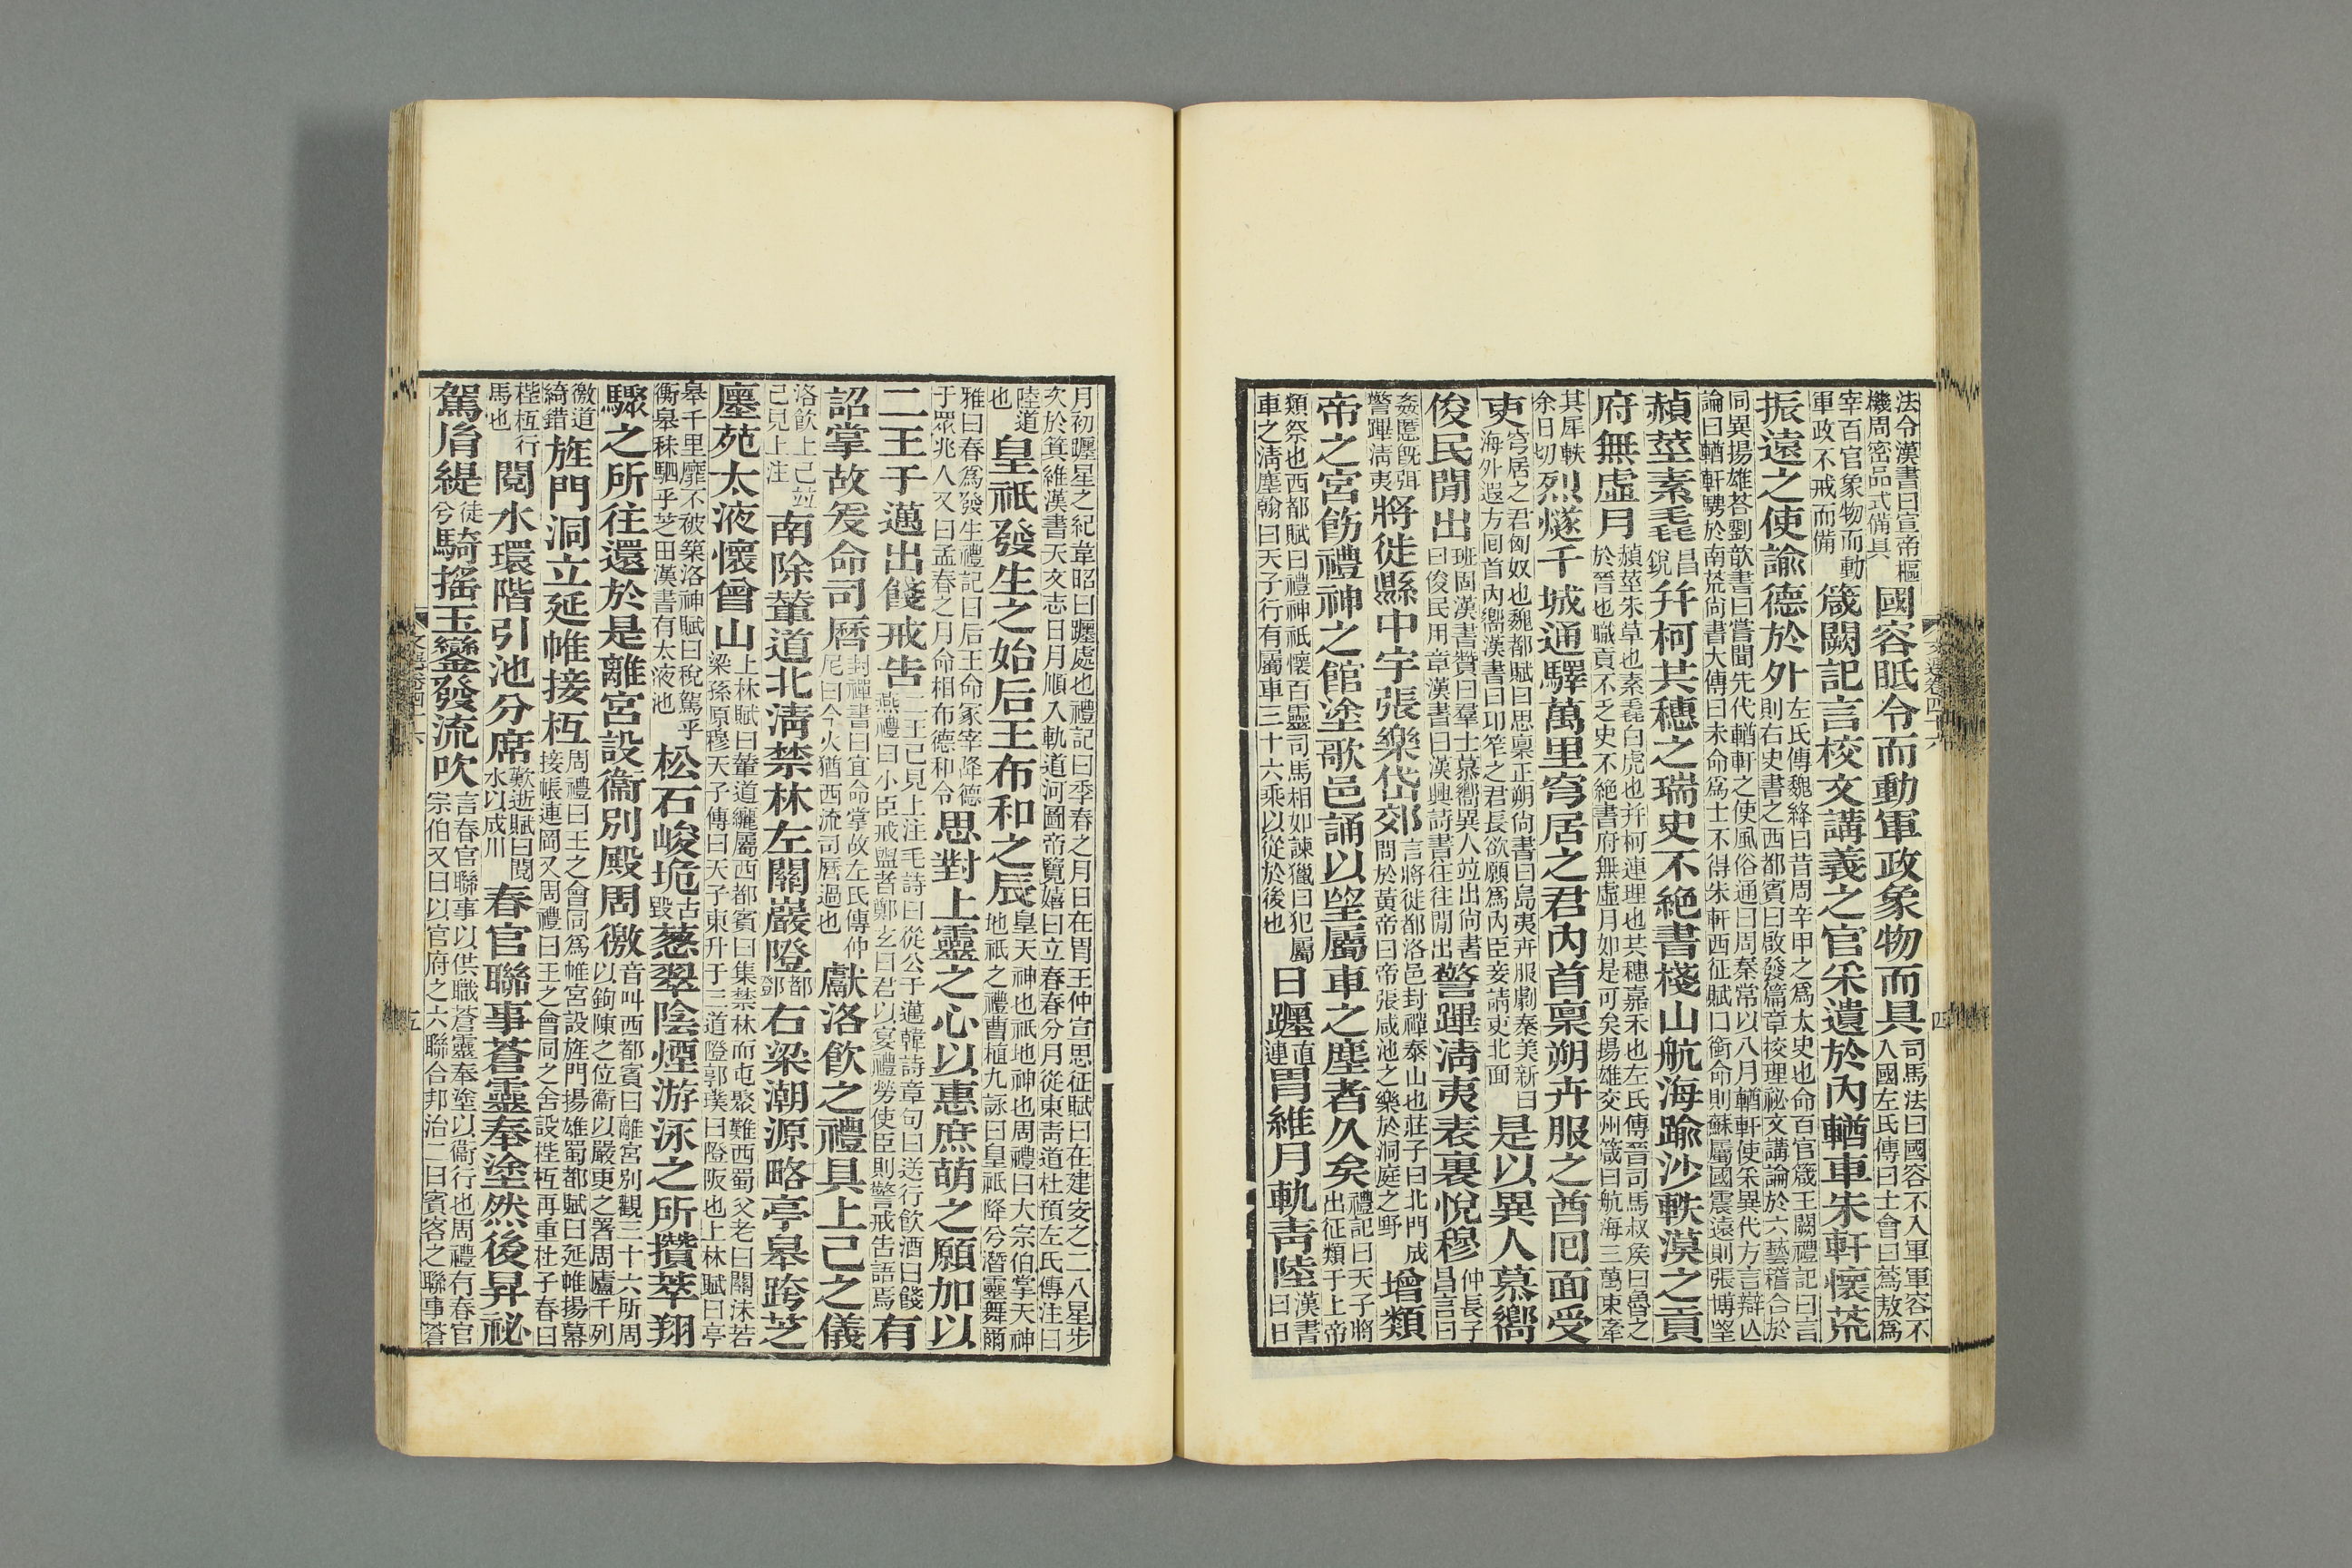 法令漢書曰宣帝樞機周密品式備具國容眂令而動軍政象物而具司馬法曰國容不入軍軍容不入國左氏傳曰士會曰蔿敖為
宰百官象物而動軍政不戒而備箴闕記言校文講義之官采遺於內輶車朱軒懷荒
振遠之使諭德於外左氏傳魏絳曰昔周辛甲之為太史也命百官箴王闕禮記曰言則右史書之西都賓曰啟發篇章校理祕文講論於六藝稽合於
同異揚雄荅劉歆書曰嘗聞先代輶軒之使風俗通曰周秦常以八月輶軒使采異代方言辯亾論曰輶軒騁於南荒尚書大傳曰未命為士不得朱軒西征賦曰銜命則蘇屬國震遠則張博望
赬莖素毳昌銳幷柯共穗之瑞史不絕書棧山航海踰沙軼漠之貢
府無虛月赬莖朱草也素毳白虎也幷柯連理也共穗嘉禾也左氏傳晉司馬叔侯曰魯之於晉也職貢不乏史不絕書府無虛月如是可矣揚雄交州箴曰航海三萬東牽
其犀軼余日切烈燧千城通驛萬里穹居之君內首稟朔卉服之酋回面受
吏穹居之君匈奴也魏都賦曰思稟正朔尚書曰島夷卉服劇秦美新曰海外遐方回首內嚮漢書曰卭筰之君長欲願為內臣妾請吏北面是以異人慕嚮
俊民閒出班固漢書贊曰羣士慕嚮異人竝出尚書曰俊民用章漢書曰漢興詩書往往閒出警蹕淸夷表裏悅穆仲長子昌言曰
姦慝旣弭警蹕淸夷將徙縣中宇張樂岱郊言將徙都洛邑封禪泰山也莊子曰北門成問於黃帝曰帝張咸池之樂於洞庭之野增類
帝之宮飭禮神之館塗歌邑誦以望屬車之塵者久矣禮記曰天子將出征類于上帝
類祭也西都賦曰禮神祇懷百靈司馬相如諫獵曰犯屬車之淸塵翰曰天子行有屬車三十六乘以從於後也日躔直連胃維月軌靑陸漢書曰日
文選卷四十六
四
月初躔星之紀韋昭曰躔處也禮記曰季春之月日在胃王仲宣思征賦曰在建安之二八星步次於箕維漢書天文志曰月順入軌道河圖帝覽嬉曰立春春分月從東靑道杜預左氏傳注曰
陸道也皇祇發生之始后王布和之辰皇天神也祇地神也周禮曰大宗伯掌天神地祇之禮曹植九詠曰皇祇降兮潛靈舞爾
雅曰春為發生禮記曰后王命冢宰降德于眾兆人又曰孟春之月命相布德和令思對上靈之心以惠庶萌之願加以
二王于邁出餞戒告二王已見上注毛詩曰從公于邁韓詩章句曰送行飲酒曰餞燕禮曰小臣戒盥者鄭玄曰君以宴禮勞使臣則警戒告語焉有
詔掌故爰命司曆封禪書曰宜命掌故左氏傳仲尼曰今火猶西流司曆過也獻洛飲之禮具上巳之儀
洛飲上巳竝已見上注南除輦道北淸禁林左關巖隥都鄧右梁潮源略亭皋跨芝
廛苑太液懷曾山上林賦曰輦道纚屬西都賓曰集禁林而屯聚難西蜀父老曰關沫若梁孫原穆天子傳曰天子東升于三道隥郭璞曰隥阪也上林賦曰亭
皋千里靡不被築洛神賦曰稅駕乎衡皋秣駟乎芝田漢書有太液池松石峻垝古毀蔥翠陰煙游泳之所攢萃翔
驟之所往還於是離宮設衞別殿周徼音叫西都賓曰離宮別觀三十六所周以鉤陳之位衞以嚴更之署周廬千列
徼道綺錯旌門洞立延帷接枑周禮曰王之會同為帷宮設旌門揚雄蜀都賦曰延帷揚幕接帳連岡又周禮曰王之會同之舍設梐枑再重杜子春曰
梐枑行馬也閱水環階引池分席歎逝賦曰閱水以成川春官聯事蒼靈奉塗然後昇祕
駕胤緹徒兮騎搖玉鑾發流吹言春官聯事以供職蒼靈奉塗以衞行也周禮有春官宗伯又曰以官府之六聯合邦治一曰賓客之聯事蒼
文選卷四十六
五